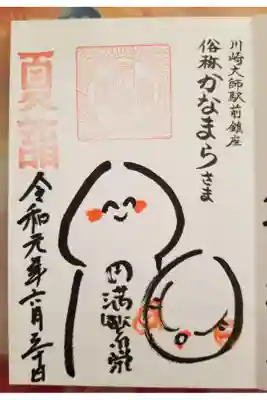 川崎大師駅前鎮座
俗称かなまらさま
夏詣
円満
令和元年六月三十日